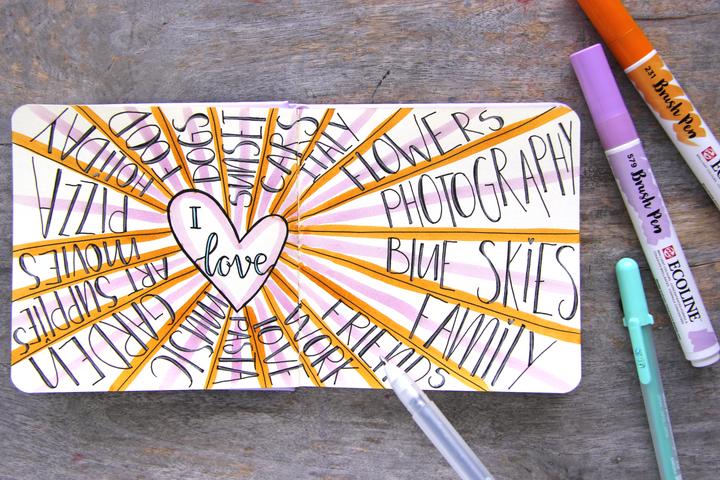 I
love
HOLIDAY
FOOD
DOGS
SUNSET
CATS
ITALY
FLOWERS
PHOTOGRAPHY
BLUE SKIES
FAMILY
FRIENDS
WORK
MUSIC
GARDEN
ART SUPPLIES
MOVIES
PIZZA
231 Brush Pen
579 Brush Pen
ECOLINE